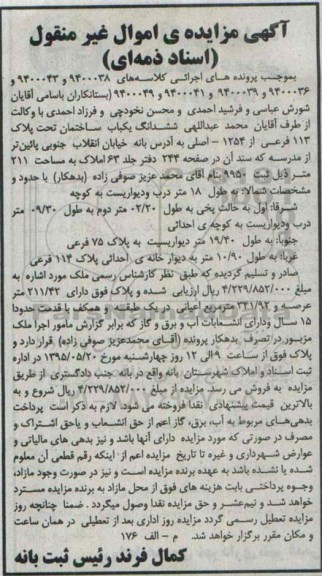 آگهی مزایده ی اموال غیر منقول
(اسناد ذمه‌ای)
بموجب پرونده های اجرائی کلاسه‌های ۹۴۰۰۰۳۸ و ۹۴۰۰۰۴۳ و
۹۴۰۰۰۳۶ و ۹۴۰۰۰۳۹ و ۹۴۰۰۰۴۱ و ۹۴۰۰۰۴۹ (بستانکاران باسامی آقایان
شورش عباسی و فرشید احمدی و محسن نخودچی و فرزاد احمدی با وکالت
از طرف آقایان محمد عبداللهی ششدانگ یکباب ساختمان تحت پلاک
۱۱۳ فرعی از ۱۲۵۴ - اصلی به آدرس بانه خیابان انقلاب جنوبی پائین‌تر
از مدرسه که سند آن در صفحه ۲۴۴ دفتر جلد ۶۳ املاک به مساحت ۲۱۱
متر ذیل ثبت ۹۹۵۰ بنام آقای محمد عزیز صوفی زاده (بدهکار) با حدود و
مشخصات شمالا: به طول ۱۸ متر درب ودیواریست به کوچه
شرقا: اول به حالت پخی به طول ۰۲/۲۰ متر دوم به طول ۰۹/۳۰ متر
درب ودیواریست به کوچه ی احداثی
جنوبا: به طول ۱۹/۴۰ متر دیواریست به پلاک ۷۵ فرعی
غربا: به طول ۱۰/۹۰ متر به دیوار خانه ی احداثی پلاک ۱۱۴ فرعی
صادر و تسلیم گردیده که طبق نظر کارشناس رسمی ملک مورد اشاره به
مبلغ ۴/۲۲۹/۸۵۲/۰۰۰ ریال ارزیابی شده و پلاک فوق دارای ۲۱۱/۴۲ متر
عرصه و ۳۴۱/۹۲ مترمربع اعیانی در یک طبقه و همکف با قدمت حدودا
۱۵ سال ودارای انشعابات آب و برق و گاز که برابر گزارش مامور اجرا ملک
مزبور در تصرف بدهکار پرونده (آقای محمدعزیز صوفی زاده) قرار دارد و
پلاک فوق از ساعت ۹ الی ۱۲ روز چهارشنبه مورخ ۱۳۹۵/۰۵/۲۰ در اداره
ثبت اسناد و املاک شهرستان بانه واقع در بانه جنب دادگستری از طریق
مزایده به فروش می رسد. مزایده از مبلغ ۴/۲۲۹/۸۵۲/۰۰۰ ریال شروع و به
بالاترین قیمت پیشنهادی نقدا فروخته می شود. لازم به ذکر است پرداخت
بدهی‌های مربوط به آب، برق، گاز اعم از حق انشعاب و یاحق اشتراک و
مصرف در صورتی که مورد مزایده دارای آنها باشد و نیز بدهی های مالیاتی و
عوارض شهرداری و غیره تا تاریخ مزایده اعم از اینکه رقم قطعی آن معلوم
شده یا نشده باشد به عهده برنده مزایده است و نیز در صورت وجود مازاد،
وجوه پرداختی بابت هزینه های فوق از محل مازاد به برنده مزایده مسترد
خواهد شد و نیم‌عشر و حق مزایده نقدا وصول میگردد . ضمنا چنانچه روز
مزایده تعطیل رسمی گردد مزایده روز اداری بعد از تعطیلی در همان ساعت
و مکان مقرر برگزار خواهد شد. م - الف ۱۷۶
کمال فرند رئیس ثبت بانه